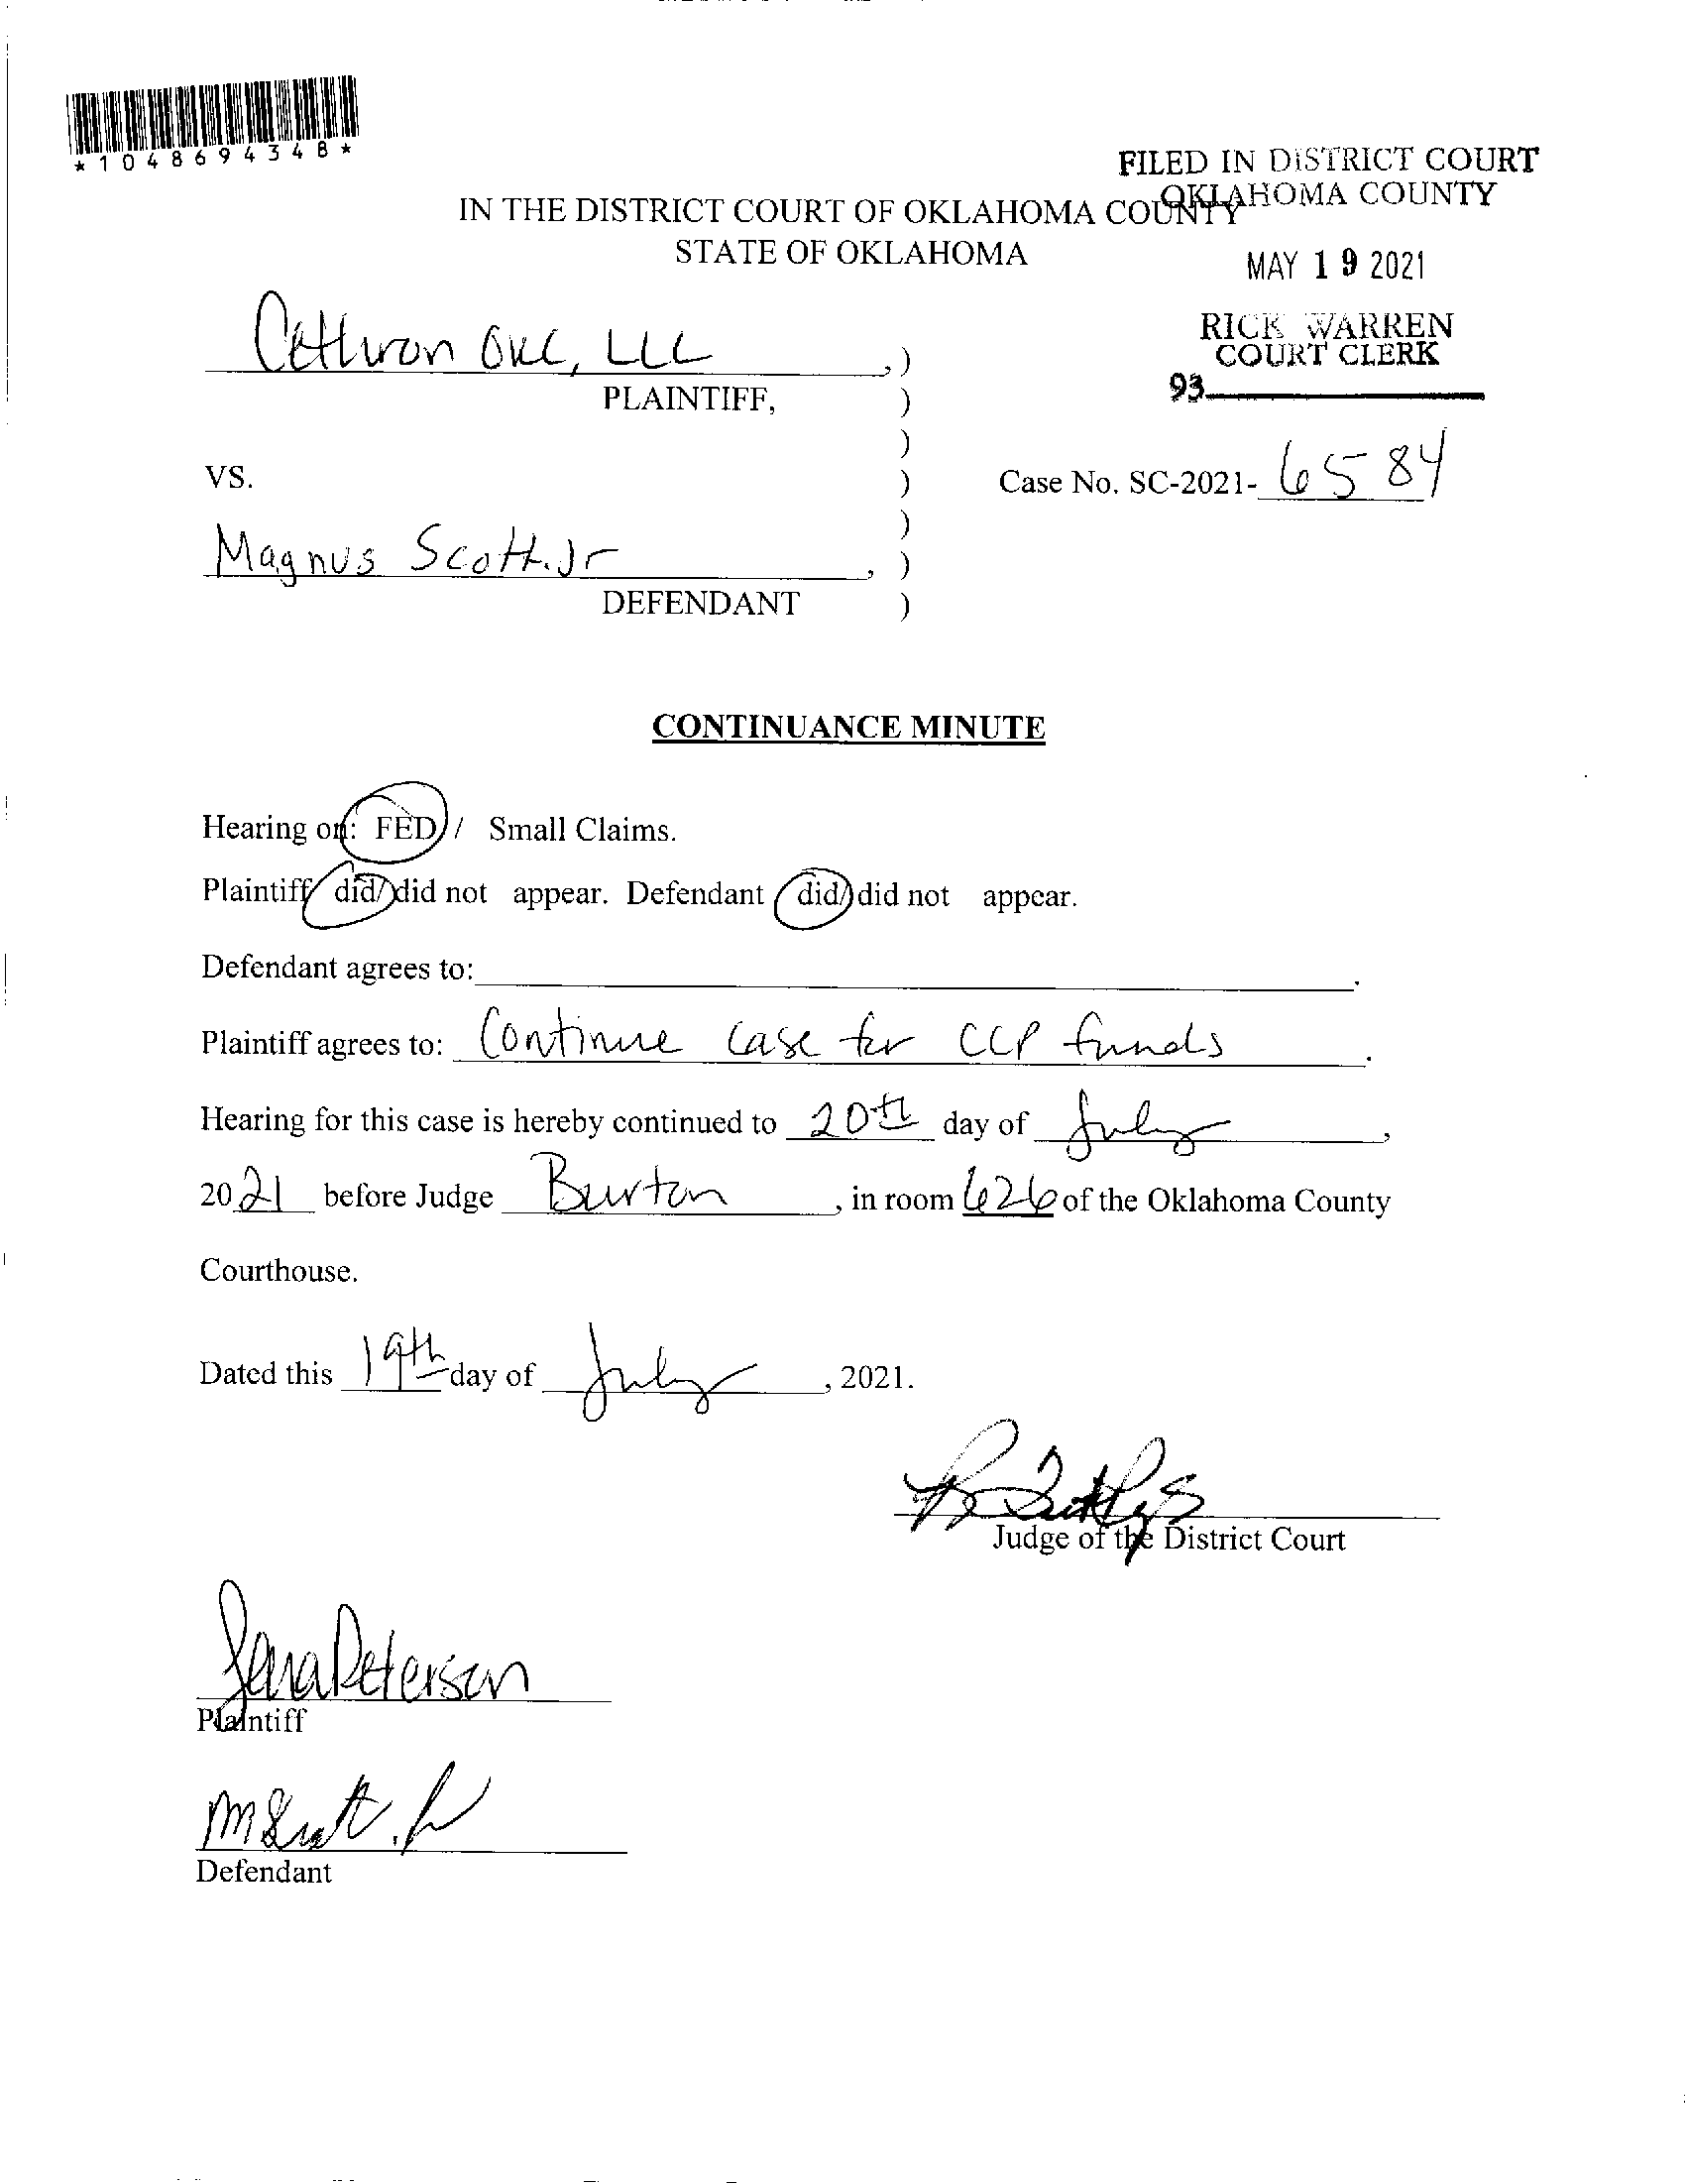 *1048694348*
FILED IN DISTRICT COURT
OKLAHOMA COUNTY
IN THE DISTRICT COURT OF OKLAHOMA COUNTY
STATE OF OKLAHOMA
MAY 19 2021
RICK WARREN
COURT CLERK
93
OKC, LLC , )
PLAINTIFF, )
)
VS. )
Case No. SC-2021- 6584
)
Magnus Scott.Jr , )
DEFENDANT )
CONTINUANCE MINUTE
Hearing on: FED / Small Claims.
Plaintiff did/ did not appear. Defendant did/ did not appear.
Defendant agrees to: .
Plaintiff agrees to: Continue case for CCP funds .
Hearing for this case is hereby continued to 20th day of July ,
2021 before Judge Burton , in room 626 of the Oklahoma County
Courthouse.
Dated this 19th day of July , 2021.
Judge of the District Court
Peterson
Plaintiff
Defendant